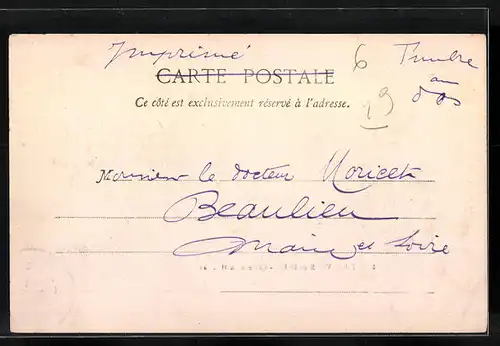 Imprimé
6
Timbre
au
dos
CARTE POSTALE
19
Ce côté est exclusivement réservé à l'adresse.
Monsieur le docteur Moricet
Beaulieu
Maine et Loire